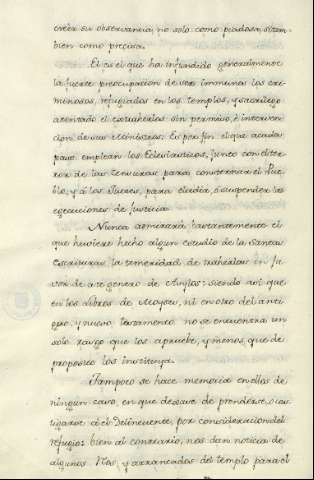 creèr su observancia, no solo como piadosa, sitam-
bien como precisa.
El es el que ha infundido generalmente
la fuerte preocupacion de ser immunes los cri-
minosos, refugiados en los templos, y sacrilego
atentado el extraherlos sin permiso, è interven-
cion de sus Ministros: Es por fin el que à cada
paso emplean los Eclesiasticos, junto con el ter-
ror de las Censuras para consternar el Pue-
blo, y á los Jueces, para eludir, ó suspender las
egecuciones de Justicia.
Nunca admirarà bastantemente el
que huviere hecho algun estudio de la Santas
Escrituras la temeridad de traherlas en fa
vor de este genero de Asylos: siendo asi que
en los libros de Moyses, ni en otro del anti-
guo, y nuevo testamento no se encuentra un
solo rasgo que los apruebe, y menos, que de
proposito los instituya.
Tampoco se hace memoria en ellos de
ningun caso, en que dexase de prenderse, ò cas
tigarse à el Delinquente, por consideracion del
refugio: bien al contrario, nos dan noticia de
algunos Reos, y arrancados del templo para el